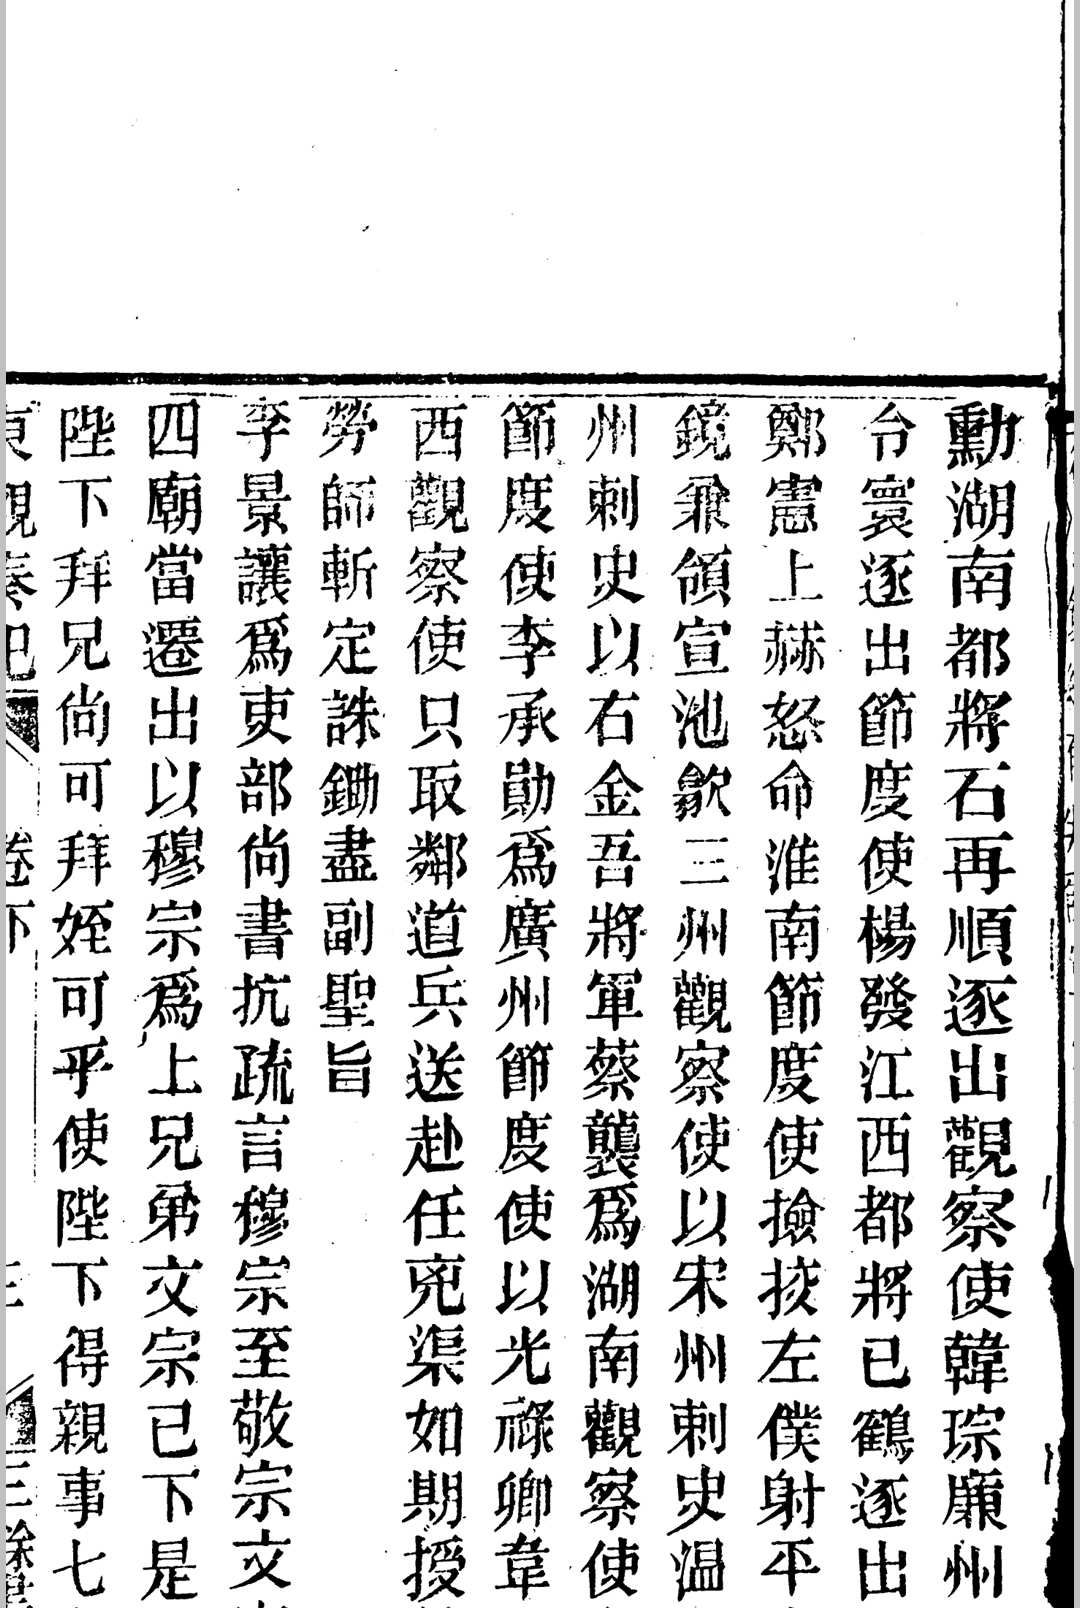 勳湖南都將石再順逐出觀察使韓琮廉州
令寰逐出節度使楊發江西都將已鶴逐出
鄭憲上赫怒命淮南節度使撿挍左僕射平
鏡兼領宣池歙三州觀察使以宋州刺史温
州刺史以右金吾將軍蔡襲爲湖南觀察使
節度使李承勛爲廣州節度使以光祿卿韋
西觀察使只取鄰道兵送赴任兇渠如期授
勞師斬定誅鋤盡副聖旨
李景讓爲吏部尚書抗疏言穆宗至敬宗文
四廟當遷出以穆宗爲上兄弟文宗已下是
陛下拜兄尚可拜姪可乎使陛下得親事七
東觀奏記 卷下 三